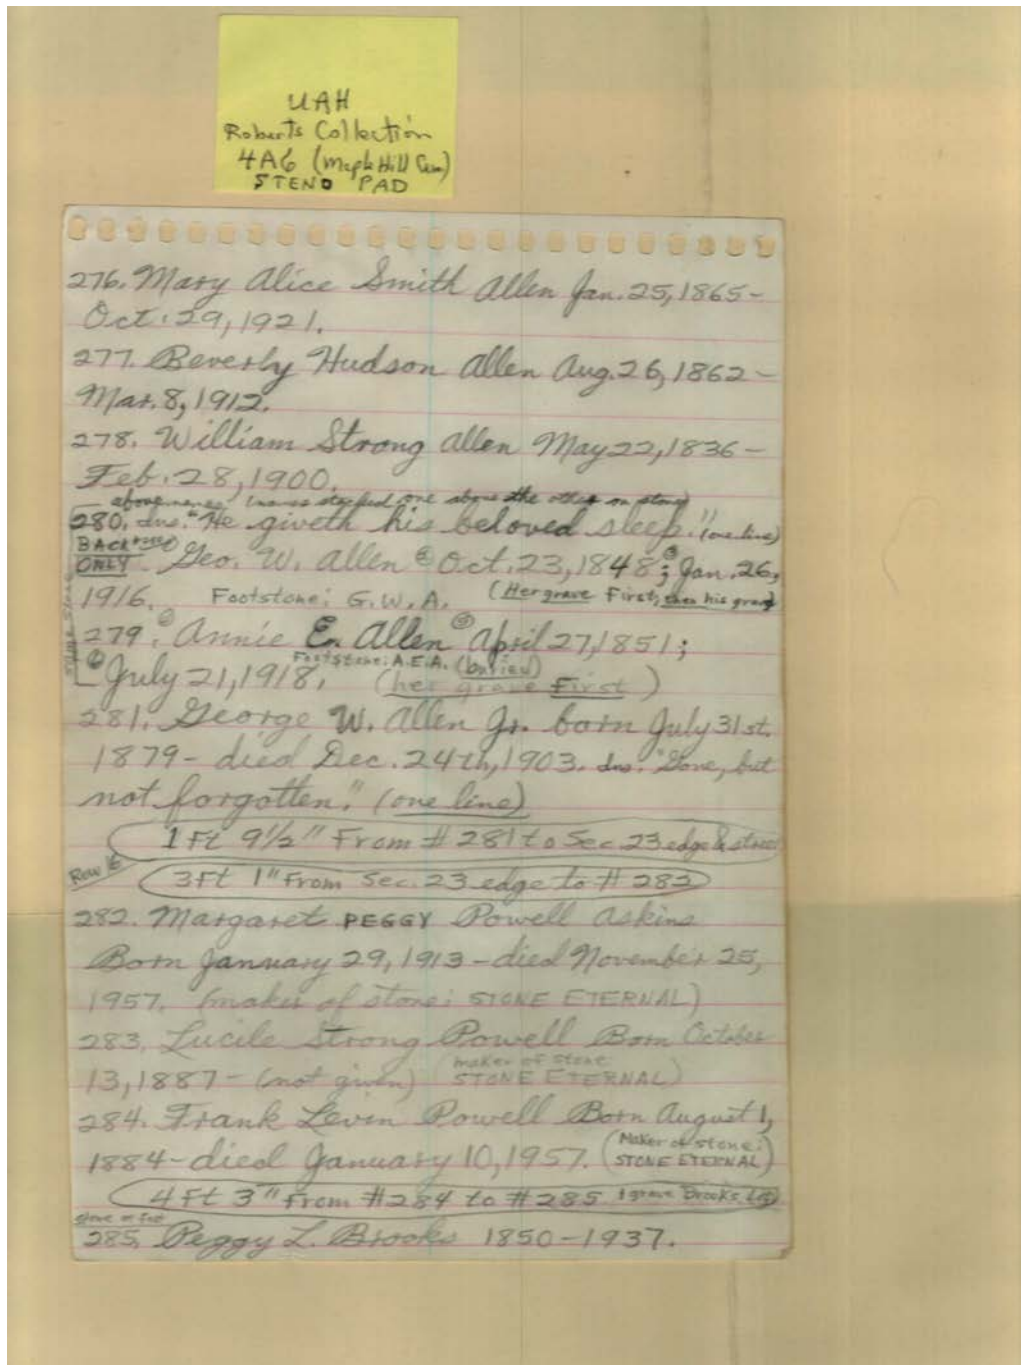 UAH
Roberts Collection
4A6 (Maple Hill Cem)
STENO PAD
276. Mary Alice Smith Allen Jan. 25, 1865-
Oct. 29, 1921.
277. Beverly Hudson Allen Aug. 26, 1862-
Mar. 8, 1912.
278. William Strong Allen May 22, 1836-
Feb. 28, 1900.
above names (names stacked one above the other on stone)
280. ins. "He giveth his beloved sleep." (one line)
BACK
ONLY Geo. W. Allen Oct. 23, 1848; Jan. 26,
1916. Footstone: G.W.A. (Her grave First, then his grave)
same stone
279. Annie E. Allen April 27, 1851;
Footstone: A.E.A. (buried)
July 21, 1918. (her grave First)
281. George W. Allen Jr. born July 31st.
1879- died Dec. 24th, 1903. ins. "Gone, but
not forgotten." (one line)
1 Ft 9½" From # 281 to Sec. 23 edge & street
Row 16
3 Ft 1" From Sec. 23 edge to # 282
282. Margaret PEGGY Powell Askins
Born January 29, 1913-died November 25,
1957. (maker of stone: STONE ETERNAL)
283. Lucile Strong Powell Born October
13, 1887- (not given) (maker of stone:
STONE ETERNAL)
284. Frank Levin Powell Born August 1,
1884-died January 10, 1957. (Maker of stone:
STONE ETERNAL)
4 Ft 3" From #284 to #285 1 grave Brooks Lot
285. Peggy L. Brooks 1850-1937.